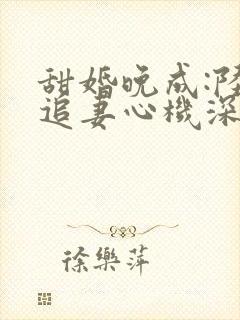 甜婚晚成:陆
追妻心機深
徐樂萍